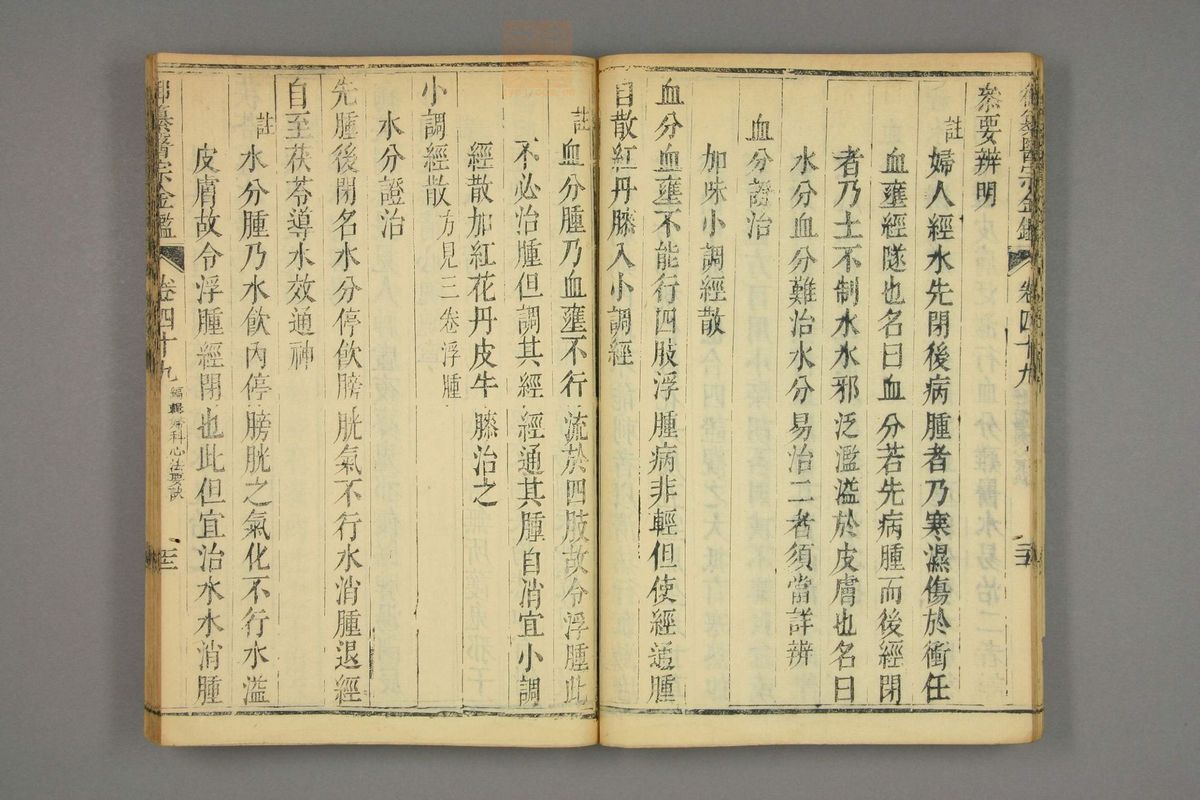 御纂醫宗金鑑 卷四十九
叅要辨明
註婦人經水先閉後病腫者乃寒濕傷於衝任
血壅經隧也名曰血分若先病腫而後經閉
者乃土不制水水邪泛濫溢於皮膚也名曰
水分血分難治水分易治二者須當詳辨
血分證治
加味小調經散
血分血壅不能行四肢浮腫病非輕但使經通腫
自散紅丹膝入小調經
註血分腫乃血壅不行流於四肢故令浮腫此
不必治腫但調其經經通其腫自消宜小調
經散加紅花丹皮牛膝治之
小調經散方見三卷浮腫
水分證治
先腫後閉名水分停飲膀胱氣不行水消腫退經
自至茯苓導水效通神
註水分腫乃水飲內停膀胱之氣化不行水溢
皮膚故令浮腫經閉也此但宜治水水消腫
御纂醫宗金鑑 卷四十九 編輯婦科心法要訣